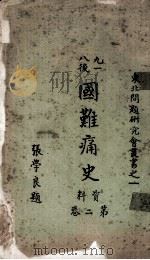 東北問題研究會叢書之一
九一
八後
國難痛史
資料
第二卷
張学良題